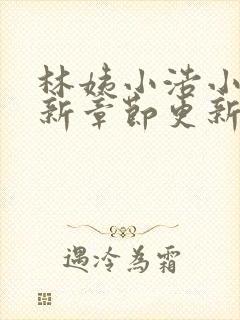 林姨小浩小
新章節更新
遇冷為霜